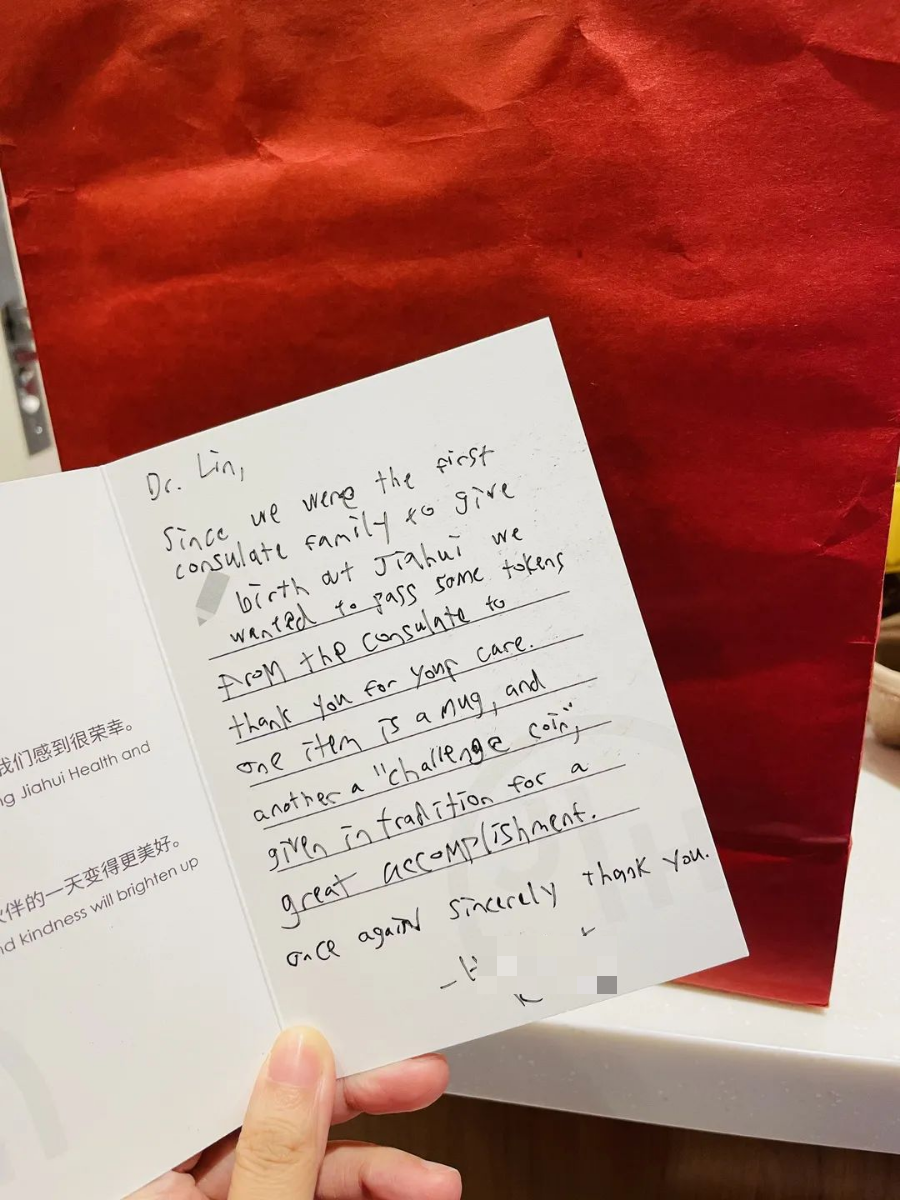 我们感到很荣幸。
ng Jiahui Health and
伙伴的一天变得更美好。
nd kindness will brighten up
Dr. Lin,
Since we were the first
consulate family to give
birth at Jiahui we
wanted to pass some tokens
from the consulate to
thank you for your care.
one item is a mug, and
another a "challenge coin",
given in tradition for a
great accomplishment.
once again sincerely thank you.